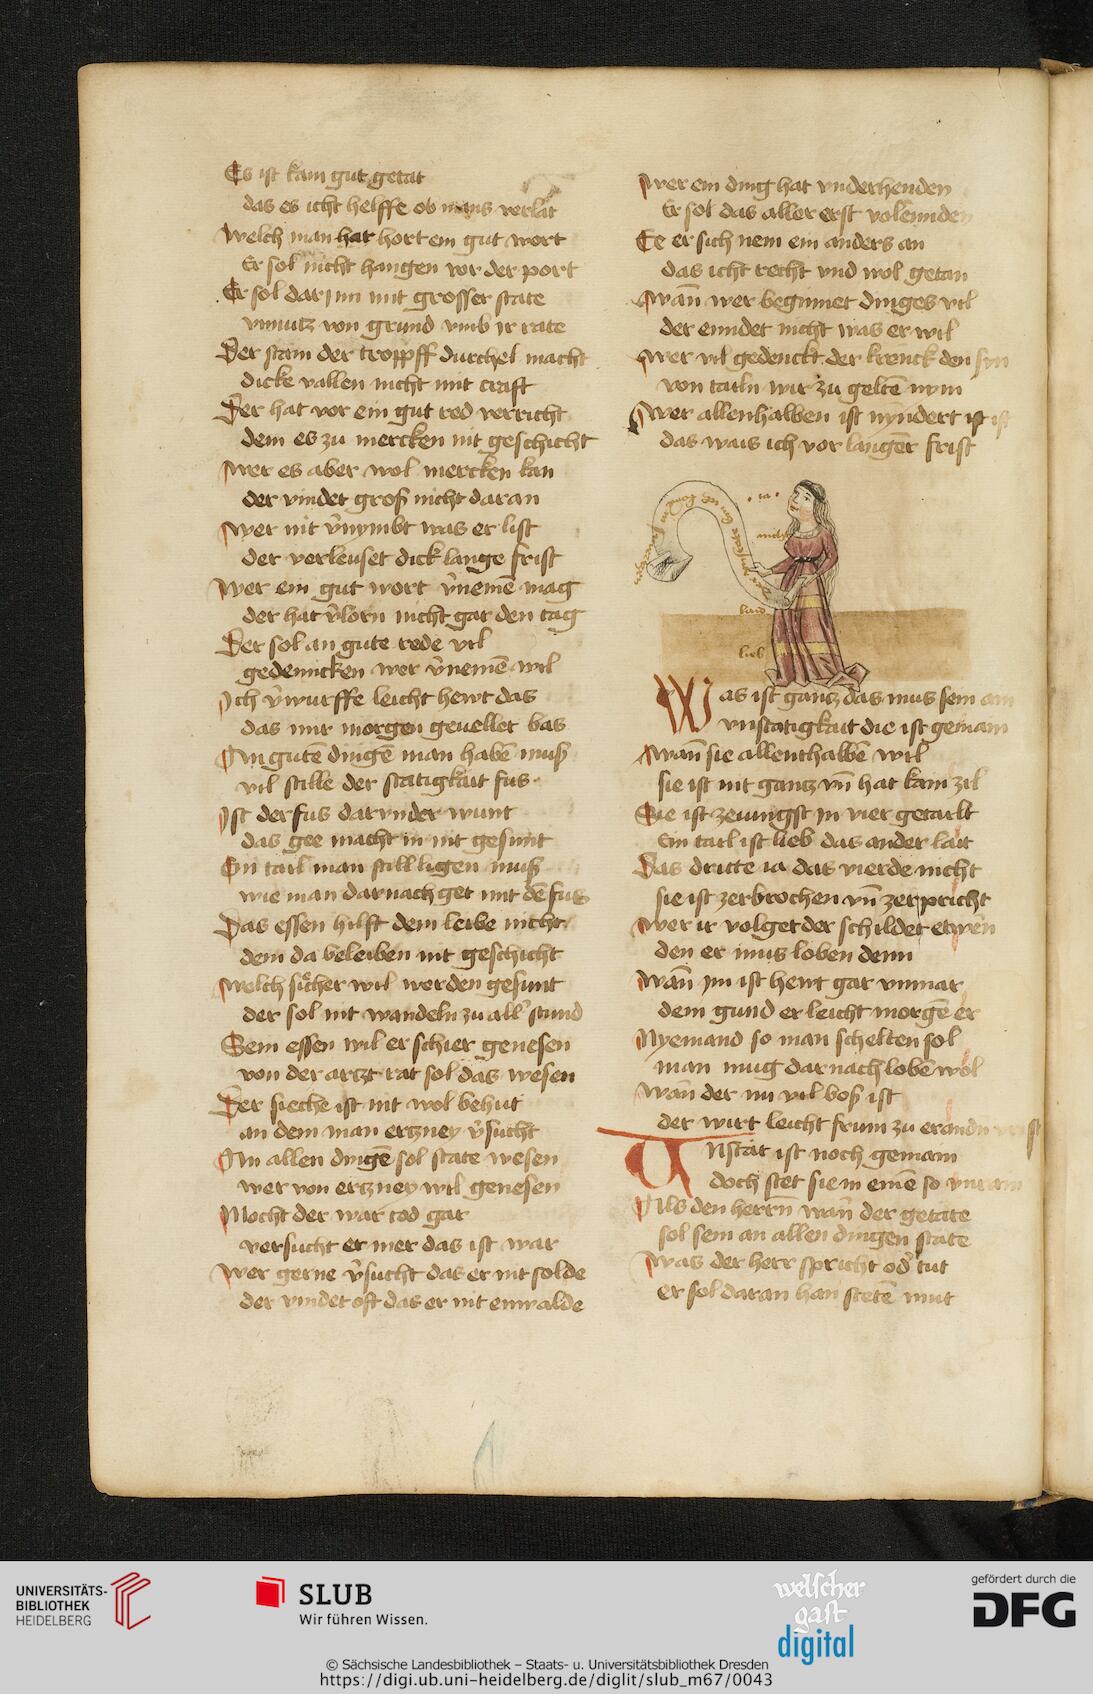 Es ist kain gut getat
das es icht helffe ob mans verlat
Welch man hat hort ein gut wort
Er sol nicht hangen vor der port
Er sol dar jnn mit grosser state
vmutz von grund vmb jr rate
Der stain der tropff durchel macht
dicke vallen nicht mit craft
Der hat vor ein gut red verricht
dem es zu mercken nit geschicht
Wer es aber wol mercken kan
der vindet groß nicht daran
Wer nit v̄nymbt was er list
der verleuset dick lange frist
Wer ein gut wort v̄nemē mag
der hat v̄lorn nicht gar den tag
Der sol an gute rede vil
gedennicken wer v̄nemē wil
Ich v̄wurffe leicht hewt das
das mir morgen geuellet bas
In gutē dingē man habē muß
vil stille der statigkait fus
Ist der fus darvnder wunt
das gee macht in nit gesunt
Ein tail man still ligen muß
wie man darnach get mit dē fus
Das essen hilft dem leibe nicht
dem da beleiben nit geschicht
Welch sicher wil werden gesunt
der sol nit wandeln zu all stund
Sein essen wil er schier genesen
von der arczt rat sol das wesen
Der sieche ist nit wol behut
an dem man erczney v̄sucht
In allen dingē sol state wesen
wer von erczney wil genesen
Mocht der war tod gar
versucht er mer das ist war
Wer gerne v̄sucht das er nit solde
der vindet oft das er nit enwalde
Wer ein ding hat vnderhenden
Er sol das aller erst volennden
Ee er sich nem ein anders an
das icht recht vnd wol getan
Wañ wer beginnet dinges vil
der enndet nicht was er wil
Wer vil gedenckt der krenck den syn
von tailn wir zu geltē nym
Wer allenhalben ist nyndert ist
das wais ich vor langer frist
ia
nicht
laid
lieb
Was ist gancz das mus sein ain
vnstatigkait die ist gemain
Wañ sie allenthalbē wil
sie ist nit gancz vñ hat kain zil
Sie ist zewingst in vier getailt
Ein tail ist lieb das ander lait
Das dritte ia das vierde nicht
sie ist zerbrochen vñ zerpricht
Wer ir volget der schildet etwen
den er mus loben denn
Wañ jm ist hewt gar vnmar
dem gund er leicht morgē er
Nyemand so man schelten sol
man mug darnach lobē wol
Wañ der nu vil boß ist
der wirt leicht frum zu
Vnstat ist noch gemain
doch stet sie in einē so
Als den herrn wañ der getate
sol sein an allen dingen state
Was der herr spricht od tut
er sol daran han stetē mut
UNIVERSITÄTS-
BIBLIOTHEK
HEIDELBERG
SLUB
Wir führen Wissen.
welscher
gast
digital
gefördert durch die
DFG
© Sächsische Landesbibliothek – Staats- u. Universitätsbibliothek Dresden
https://digi.ub.uni-heidelberg.de/diglit/slub_m67/0043